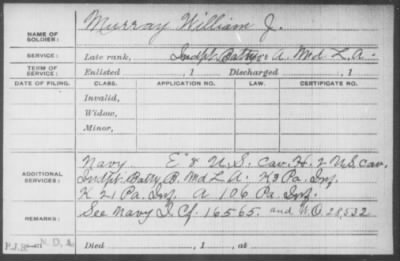 NAME OF SOLDIER: Murray William J.
SERVICE: Late rank, Indpt. Batty A. Md L.A.
TERM OF SERVICE: Enlisted , 1 Discharged , 1
DATE OF FILING. CLASS. APPLICATION NO. LAW. CERTIFICATE NO.
Invalid,
Widow,
Minor,
ADDITIONAL SERVICES: Navy E 8 U.S. Cav. H. 2 US Cav.
Indpt. Batty B. Md L A. K 3 Pa. Inf.
K 21 Pa. Inf. A 106 Pa. Inf.
REMARKS: See Navy I. Cf. 16565. and W.O 28,532
Died , 1 , at
N.D.